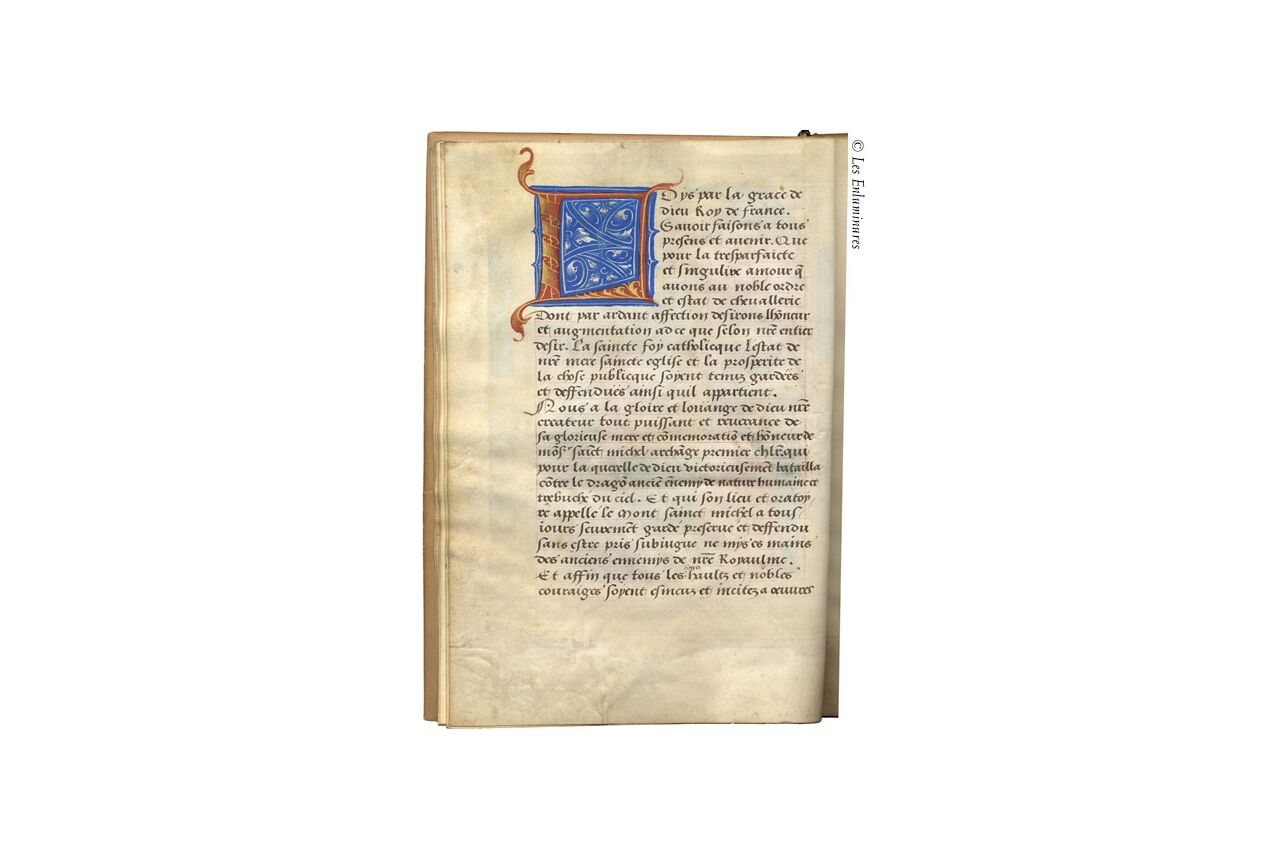 Loys par la grace de
dieu Roy de france.
Savoir faisons a tous
presens et avenir. Que
pour la tresparfaicte
et singuliere amour q̄
avons au noble ordre
et estat de chevallerie
Dont par ardant affection desirons lhōneur
et augmentation ad ce que selon nr̄e entier
desir. La saincte foy catholicque Lestat de
nr̄e mere saincte eglise et la prosperite de
la chose publicque soyent tenuz gardees
et deffendues ainsi quil appartient.
Nous a la gloire et louange de dieu nr̄e
createur tout puissant et reuerance de
sa glorieuse mere et cōmemoratiō et hōneur de
mōsʳ saīct michel archāge premier chl̄r qui
pour la querelle de dieu victorieusemēt batailla
cōtre le dragō anciē ēnemy de nature humaine et
trebuche du ciel. Et qui son lieu et oratoy-
re appelle le Mont sainct michel a tous
iours seuremēt garde preserue et deffendu
sans estre pris subiugue ne mys es mains
des anciens ennemys de nr̄e Royaulme.
Et affin que tous les haultz et nobles
couraiges soyent esmeuz et incitez a oeuvres
© Les Enluminures